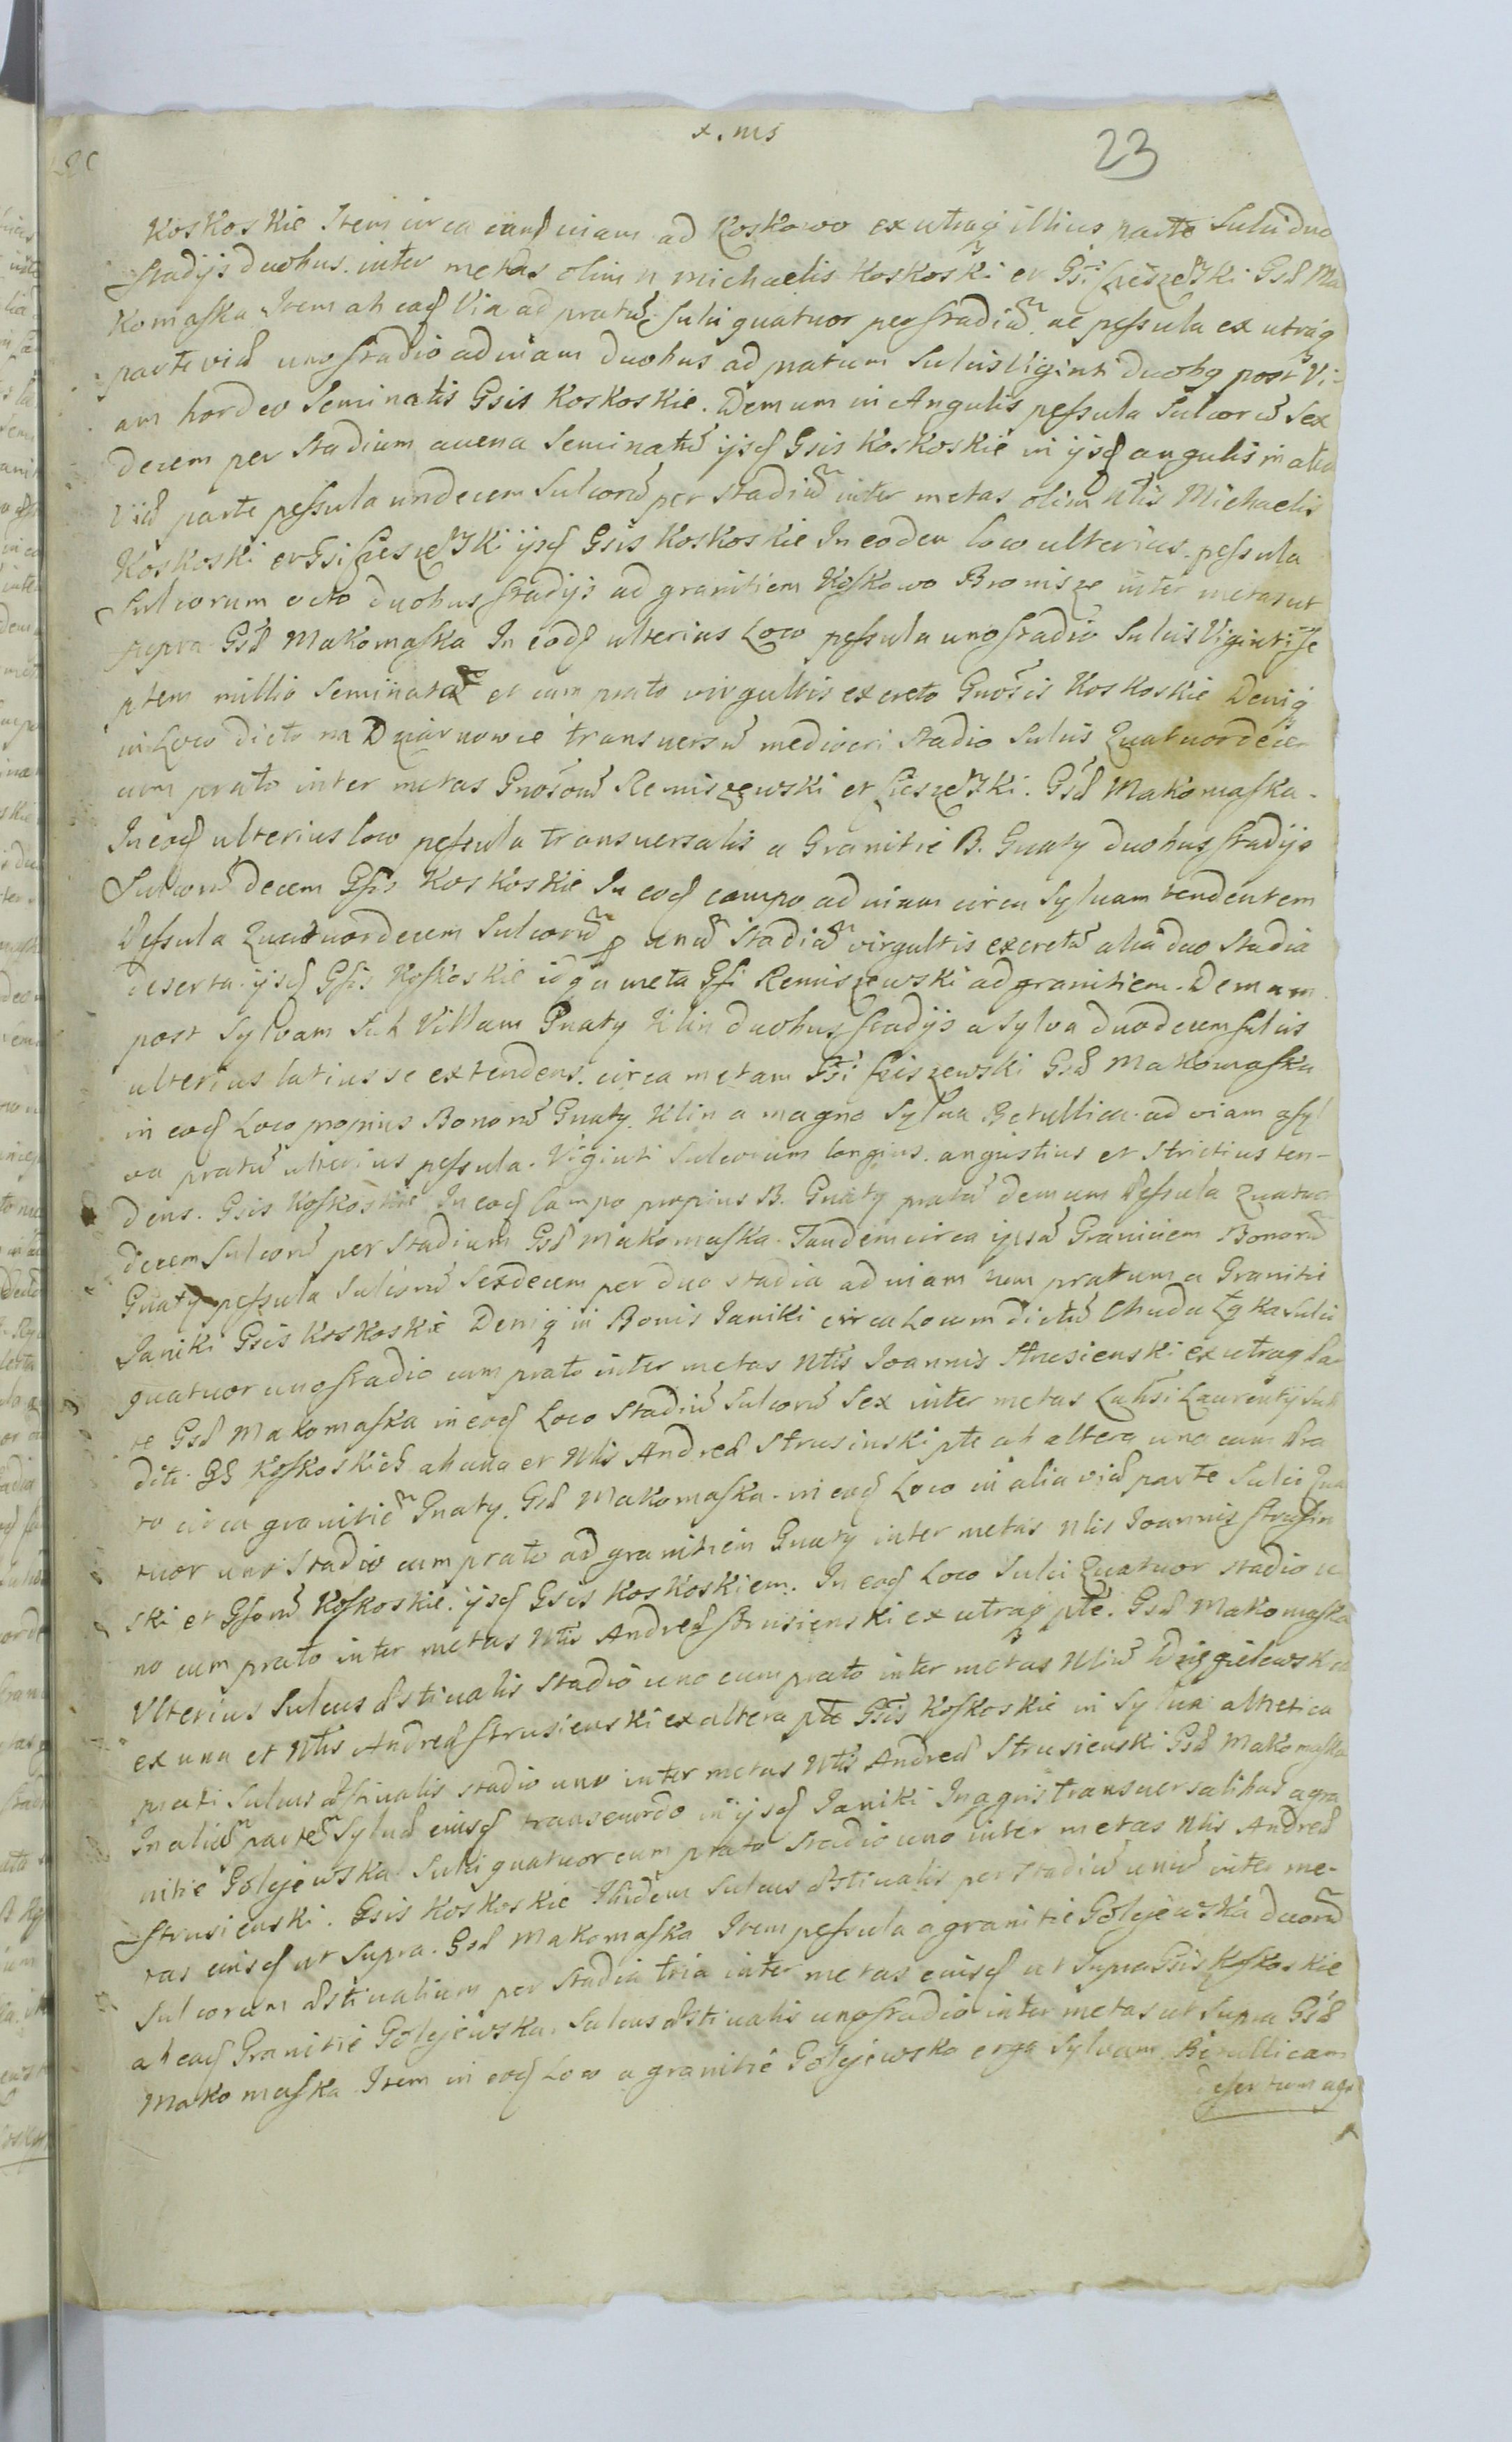 x. ms
23
Koskoskie Item circa eand viam ad Koskowo ex utraq illius parte Sulci duo
stadijs duobus inter metas olim N Michaelis Koskoski et Gsi Gsæ Ma
Komaska Item ab ead Via ad pratũ Sulci quatuor per stadiũ ac pessula ex utraq
parte viæ uno stadio ad viam duobus ad pratum Sulcis Viginti duobq post Vi-
am hordeo Seminatis Gsis Koskoskie. Demum in Angulis pessula Sulcorũ Sex
decem per Stadium avena Seminatũ ijsd Gsis Koskoskie in ijsd angulis in alia
Viæ parte pessula undecem Sulcorũ per stadiũ inter metas olim Nlis Michaelis
Koskoski et Gsi ijsd Gsis Koskoskie In eodem loco ulterius pessula
Sulcorum octo duobus stadijs ad granitiem Koskowo Bronisze inter metas ut
supra Gsæ Makomaska In eod ulterius Loco pessula uno stadio Sulcis Viginti se
ptem millio Seminata et cum prato virgultis excreto Gnosis Koskoskie Deniq
in Loco dicto na transversũ mediocri Stadio Sulcis Quatuordecem
cum prato inter metas Gnosorũ Remiszewski et Gsæ Makomaska.
In eod ulterius loco pessula transversalis a Granitie B. Gnaty duobus stadijs
Sulcorũ decem Gsis Koskoskie In eod campo ad viam circa Sylvam tendentem
Pessula Quatuordecem Sulcorũ p unũ Stadiũ virgultis excretũ alia duo Stadia
deserta ijsd Gsis Koskoskie idq a meta Gsi Remiszewski ad granitiem. Demum
post Sylvam Sub Villam Gnaty Klin duobus stadijs a Sylva duodecem sulcis
ulterius latius se extendens circa metam Gsi Gsæ Makomaska
in eod Loco propius Bonorũ Gnaty Klin a magna Sylva Betullica ad viam a syl
va pratũ ulterius pessula Viginti Sulcorum longius angustius et Strictius ten-
dens. Gsis Koskoskie In eod Campo propius B. Gnaty pratũ demum Pessula Quatuor
decem Sulcorũ per Stadium Gsæ Makomaska. Tandem circa ipsã Graniciem Bonorũ
Gnaty pessula Sulcorũ Sexdecem per duo stadia ad viam cum pratum a Granitie
Janiki Gsis Koskoskie Deniq in Bonis Janiki circa Locum dictũ Chuda Łąka Sulci
quatuor uno stadio cum prato inter metas Nlis Joannis Strusienski ex utraq Par
te Gsæ Makomaska in eod Loco Stadiũ Sulcorũ Sex inter metas Laurentij Sub
diti GG Koskoskich ab una et Nlis Andreæ Strusinski pte ab altera una cum Pra
to circa granitiẽ Gnaty. Gsæ Makomaska in eod Loco in alia viæ parte Sulci Qua
tuor uno Stadio cum prato ad granitiem Gnaty inter metas Nlis Joannis Strusin
ski et Gsorũ Koskoskie. ijsd Gsis Koskoskiem. In eod Loco Sulci Quatuor stadio u
no cum prato inter metas Nlis Andreæ Strusienski ex utraq pte. Gsæ Makomaska
Ulterius Sulcus æstivalis Stadio uno cum prato inter metas Nliũ
ex una et Nlis Andreæ Strusienski ex altera pte Gsis Koskoskie in Sylva
prati Sulcus æstivalis stadio uno inter metas Nlis Andreæ Strusienski Gsæ Makomaska
In aliã partẽ Sylvæ eiusd transeundo in ijsd Janiki In agris transversalibus a gra
nitie Golejewska Sulci quatuor cum prato Stadio uno inter metas Nlis Andreæ
Strusienski. Gsis Koskoskie Ibidem Sulcus æstivalis per stadiũ unũ inter me-
tas eiusd ut Supra. Gsæ Makomaska Item pessula a granitie Golejewska duorũ
Sulcorum æstivalium per Stadia tria inter metas eiusd ut Supra Gsis Koskoskie
ab ead Granitie Golejewska. Sulcus æstivalis uno stadio inter metas ut Supra Gsæ
Makomaska Item in eod Loco a granitie Golejewska erga Sylvam Betullicam
desertum agri